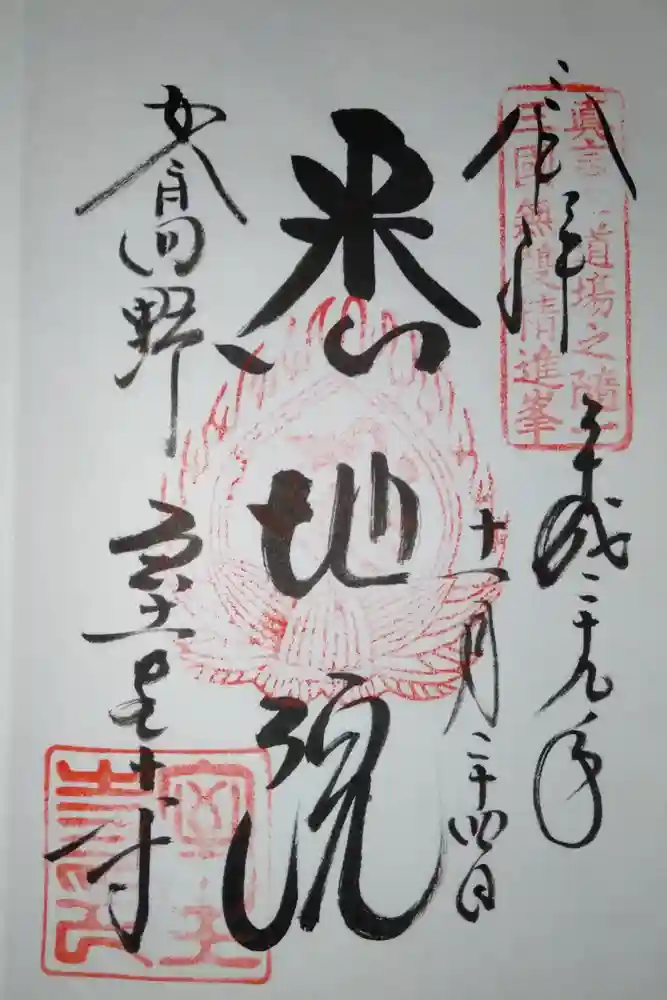 真言道場之隨一
三國無雙精進峯
奉拝
平成二十九年
十一月二十四日
悉地院
女人高野
室生寺